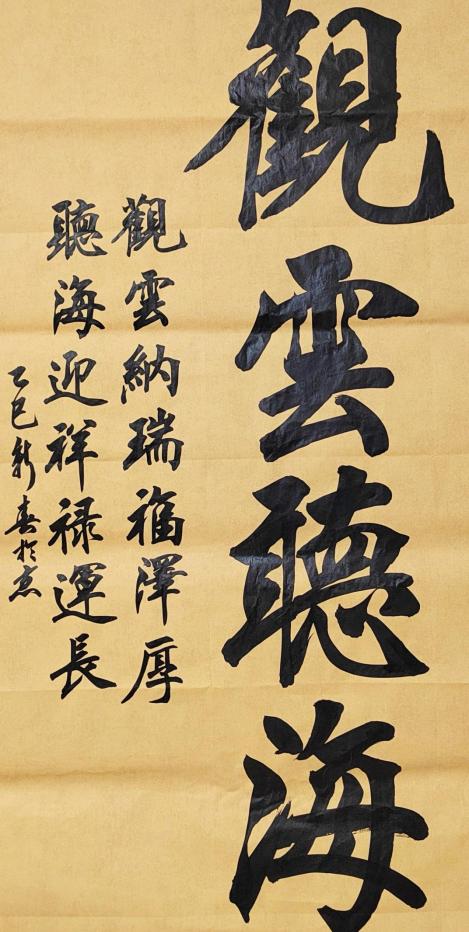 觀雲聽海
觀雲納瑞福澤厚
聽海迎祥禄運長
乙巳新春於京